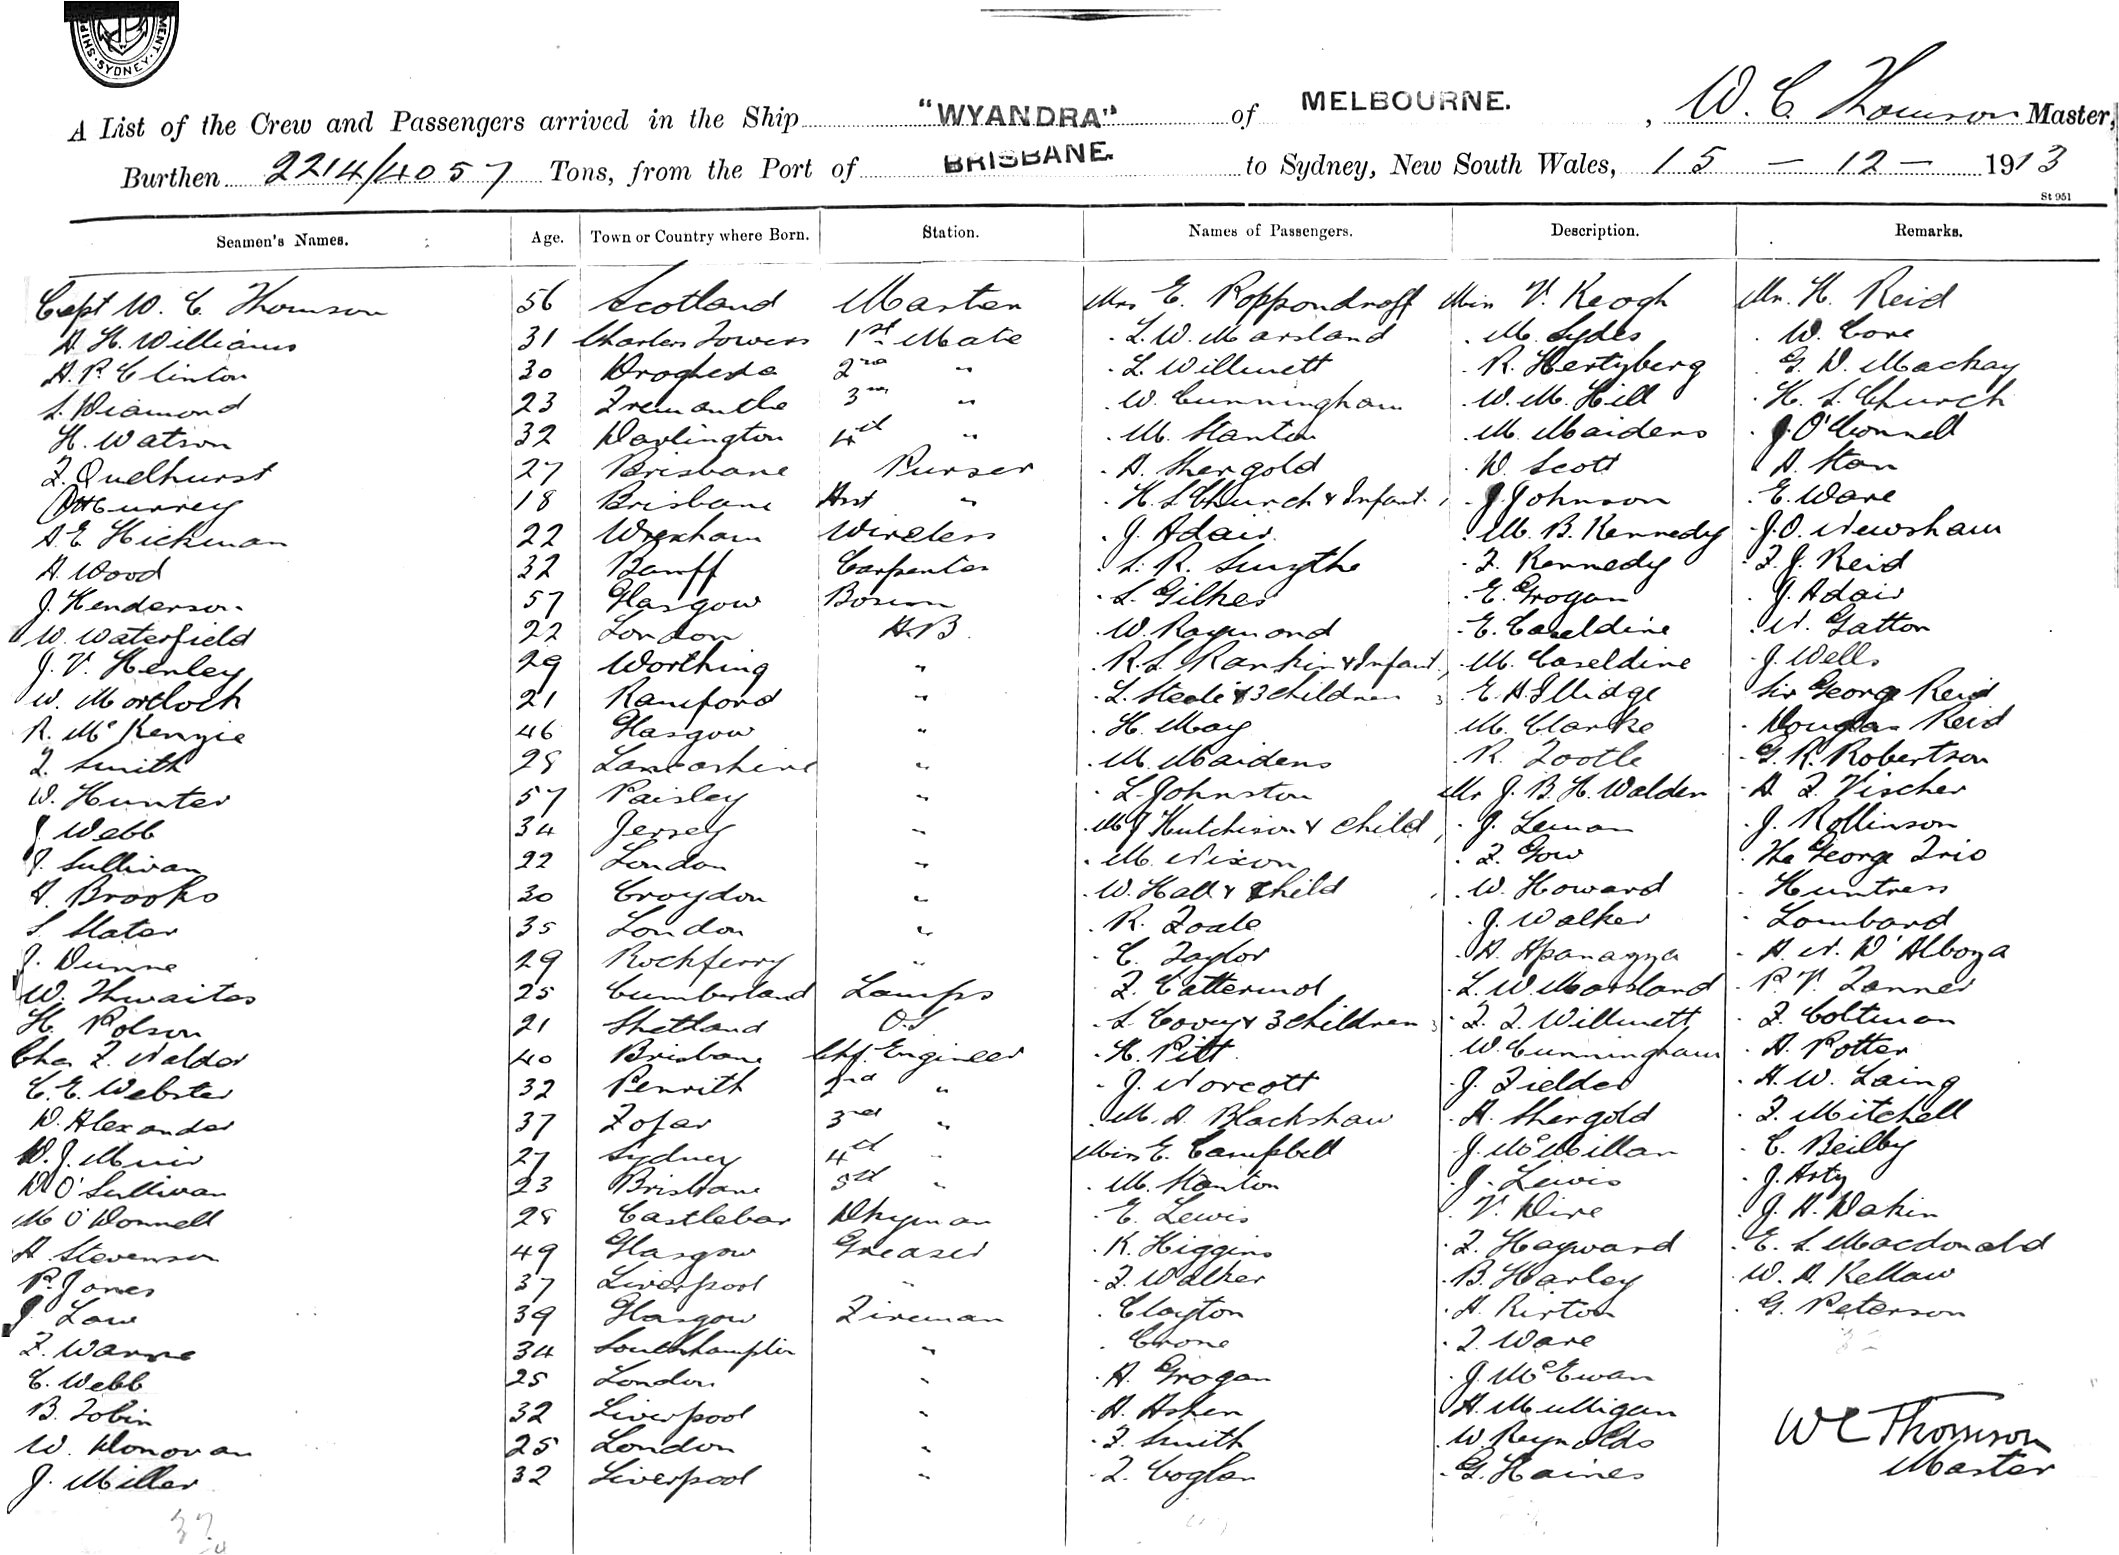 SHIP · SYDNEY · MENT
A List of the Crew and Passengers arrived in the Ship "WYANDRA" of MELBOURNE. , W. C. Thomson Master,
Burthen 2214/4057 Tons, from the Port of BRISBANE. to Sydney, New South Wales, 15 - 12 - 1913
St 951
Seamen's Names. Age. Town or Country where Born. Station. Names of Passengers. Description. Remarks.
Capt W. C. Thomson 56 Scotland Master Mrs E. Roppondroff Miss V. Keogh Mr. H. Reid
A. H. Williams 31 Charters Towers 1st Mate " L. W. Marsland " M. Sydes " W. Core
A. P. Clinton 30 Drogheda 2nd " " L. Willmett " R. Hertyberg G. D. Mackay
S. Diamond 23 Fremantle 3rd " " W. Cunningham " W. M. Hill " H. S. Church
H. Watson 32 Darlington 4th " " M. Stanton " M. Maidens " J. O'Connell
F. Quelhurst 27 Brisbane Purser " A. Shergold " W. Scott " A. Stan
Currey 18 Brisbane Asst " " H. S. Church & Infant " J. Johnson " E. Ware
A. E. Hickman 22 Wrexham Wireless " J. Adair " M. B. Kennedy " J. O. Newsham
A. Wood 32 Banff Carpenter " S. R. Smythe " F. Kennedy " F. J. Reid
J. Henderson 57 Glasgow Bosun " S. Gilkes " E. Grogan " J. Adair
W. Waterfield 22 London A.B. " W. Raymond " E. Caseldine " N. Gatton
J. V. Henley 29 Worthing " " R. S. Rankin & Infant " M. Caseldine " J. Wells
W. Mortlock 21 Rainford " " L. Steele & 3 children " E. A. Illidge Sir George Reid
R. McKenzie 46 Glasgow " " H. May M. Clarke " Douglas Reid
F. Smith 28 Lancashire " " M. Maidens " R. Tootle " G. R. Robertson
W. Hunter 57 Paisley " " L. Johnston Mr J. B. H. Walden " A. F. Vischer
J. Webb 34 Jersey " " M J Hutchison & child " J. Leman " J. Rollinson
J. Sullivan 22 London " " M. Nixon " F. Gow " The George Trio
A. Brooks 30 Croydon " " W. Hall & child " W. Howard " Huntress
S. Slater 35 London " " R. Foale " J. Walker " Lombard
J. Dunne 29 Rockferry " " C. Taylor " A. Apanazza " A. N. D'Alboza
W. Thwaites 25 Cumberland Lamps " F. Cattermol " L. W. Marsland " P. V. Tanner
H. Polson 21 Shetland O.S. " S. Covey & 3 children " F. F. Willmett " F. Coltman
Chas F. Nalder 40 Brisbane Chf. Engineer " H. Pitt " W. Cunningham " A. Potter
C. E. Webster 32 Penrith 2nd " " J. Norcott " J. Fielder " A. W. Laing
D. Alexander 37 Fofar 3rd " " M. A. Blackshaw " A. Shergold " F. Mitchell
W. J. Muir 27 Sydney 4th " Miss E. Campbell " J. McMillan " C. Beilby
D. O'Sullivan 23 Brisbane 5th " " M. Stanton " J. Lewis " J. Arty
M. O'Donnell 28 Castlebar Dkyman " E. Lewis " V. Dire " J. A. Dakin
A. Stevenson 49 Glasgow Greaser " K. Higgins " F. Hayward " E. S. Macdonald
P. Jones 37 Liverpool " " F. Walker " B. Harley " W. A. Kellaw
J. Law 39 Glasgow Fireman " Clayton " A. Kirton " G. Peterson
F. Warne 34 Southhampton " " Crone " F. Ware
C. Webb 25 London " " A. Grogan " J. McEwan
B. Tobin 32 Liverpool " " A. Asken " A. Mulligan
W. Donovan 25 London " " F. Smith " W. Reynolds
J. Miller 32 Liverpool " " F. Coglan " G. Haines
W C Thomson
Master